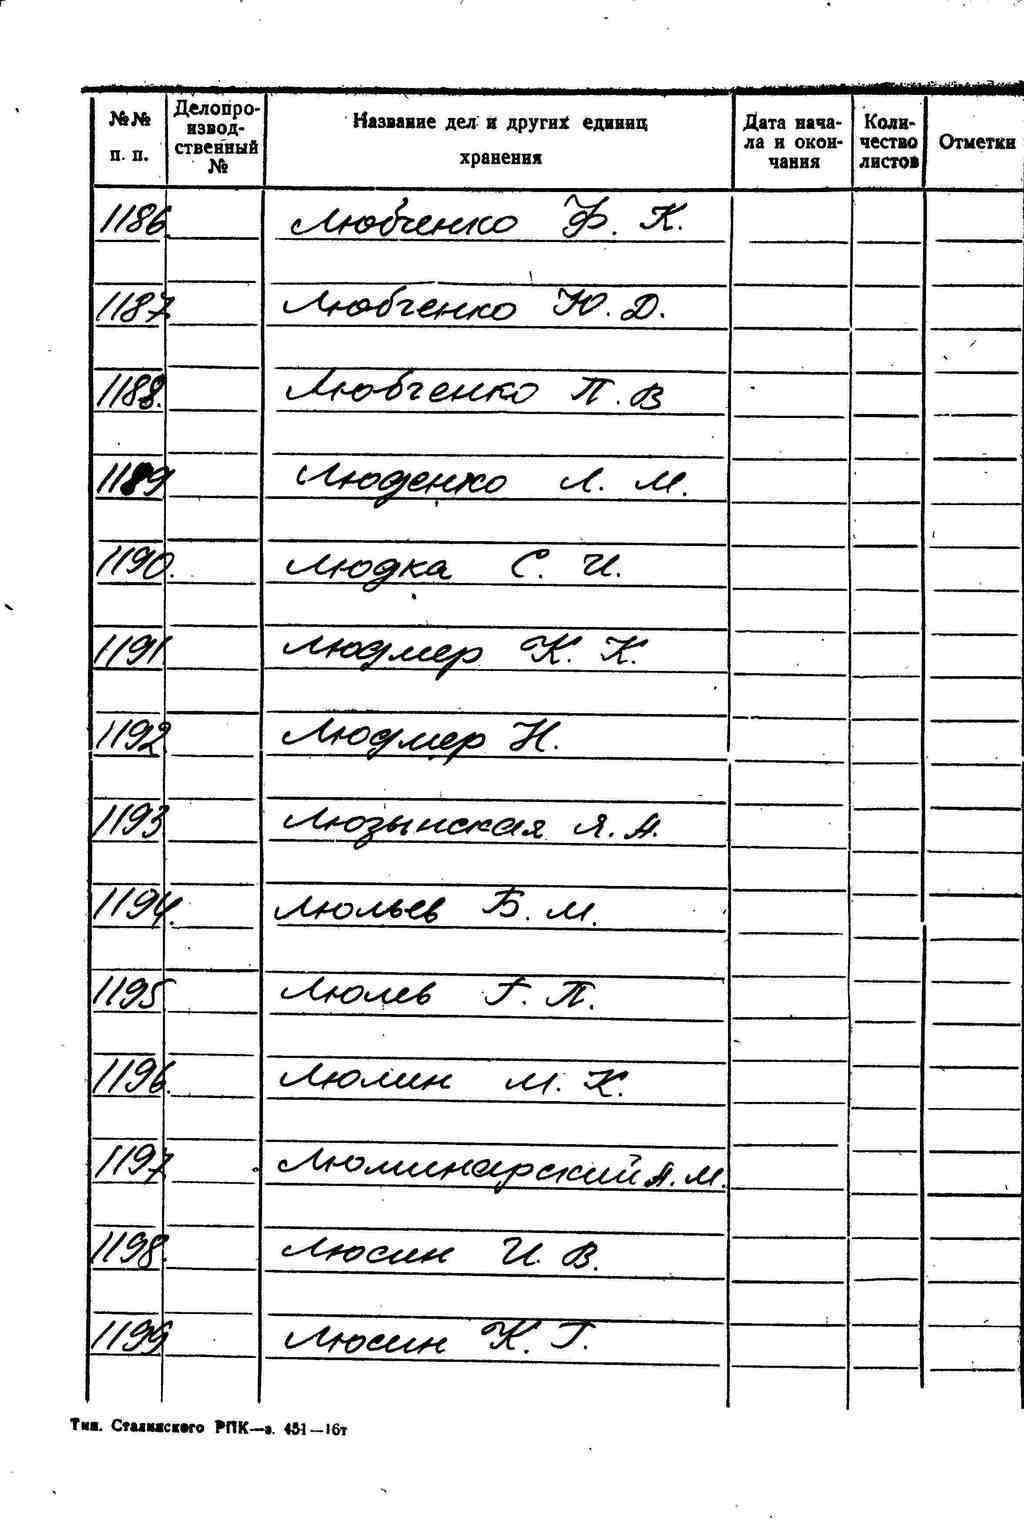 №№ п. п. Делопроизводственный № Название дел и других единиц хранения Дата начала и окончания Количество листов Отметки
1186. Любченко Ф. К.
1187 Любченко Ю. Д.
1188. Любченко П. В
1189 Люденко Л. М.
1190. Людка С. И.
1191 Людмер К. К.
1192 Людмер Н.
1193 Люзынская Я. А.
1194. Люльев Б. М.
1195 Люлев Г. П.
1196. Люлин М. К.
1197 Люминарский А. М.
1198. Люсин И. В.
1199 Люсин К. Г.
Тип. Сталинского РПК—з. 451—16т